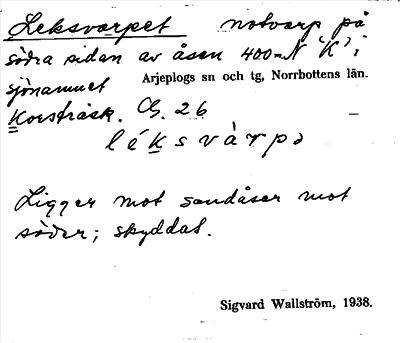 Leksvarpet notvarp på
södra sidan av åsen 400 m N "K" i
sjönamnet Arjeplogs sn och tg, Norrbottens län.
Korsträsk. G. 26
léksvàrpə
Ligger mot sandåsen mot
söder; skyddat.
Sigvard Wallström, 1938.